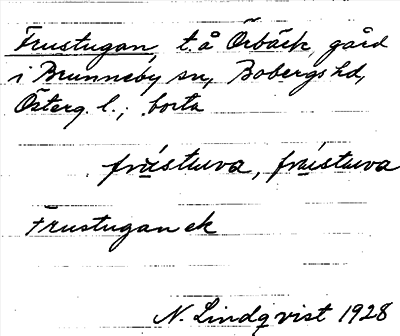 Frustugan, t. å Örbäck, gård
i Brunneby sn, Bobergs hd,
Österg. l.; borta
frústuva, frústuva
Frustugan ek
N. Lindqvist 1928